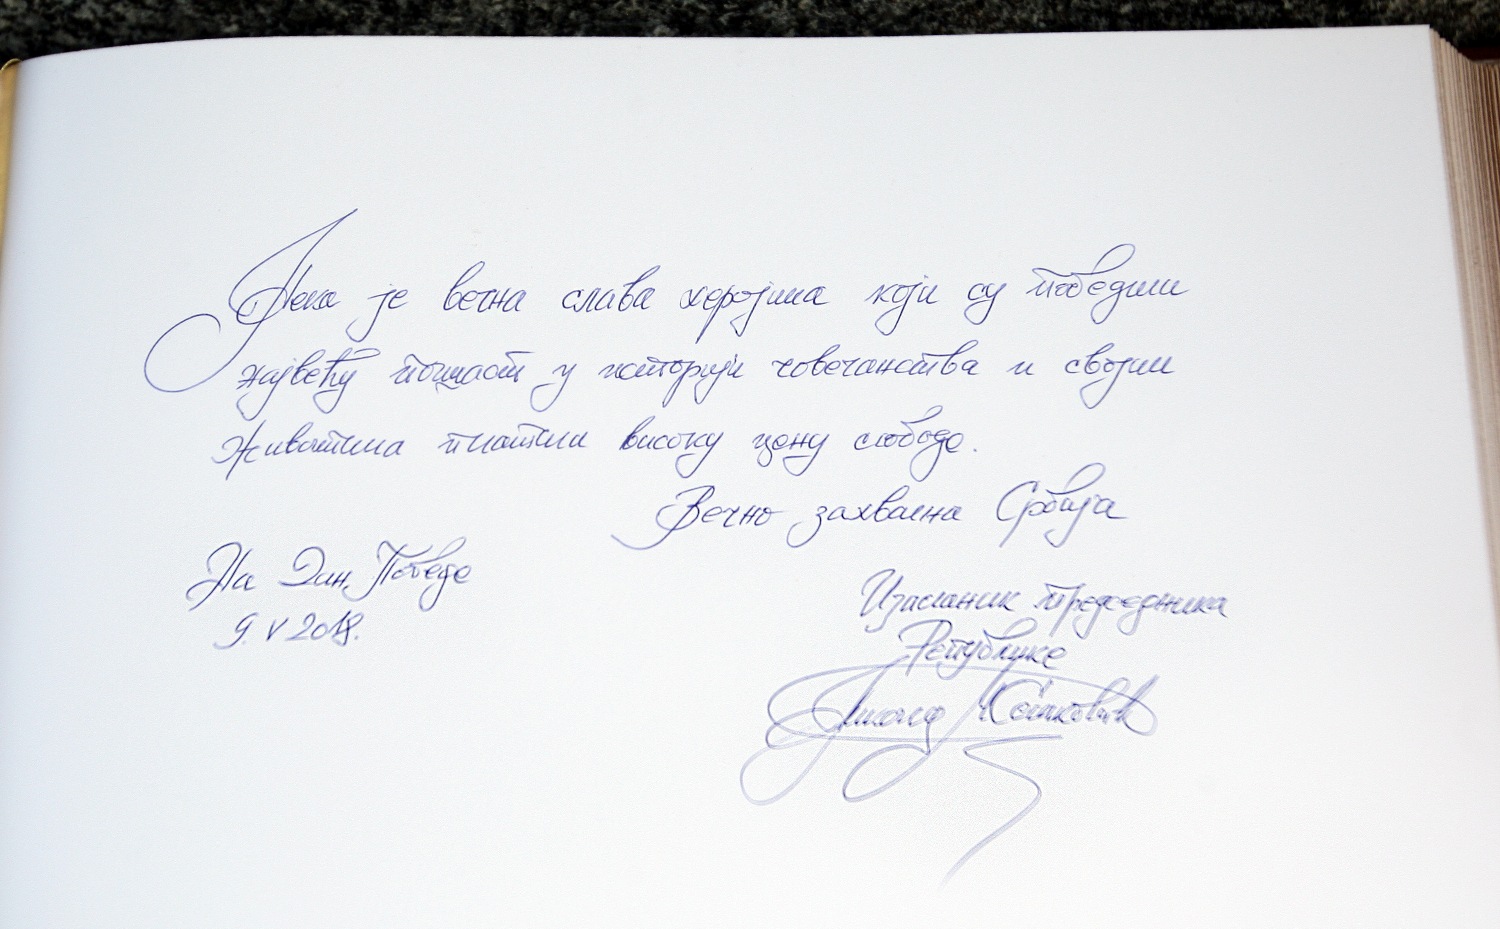 Нека је вечна слава херојима који су победили
највећу пошаст у историји човечанства и својим
животима платили високу цену слободе.
Вечно захвална Србија
На Дан Победе
9. V 2018.
Изасланик председника
Републике